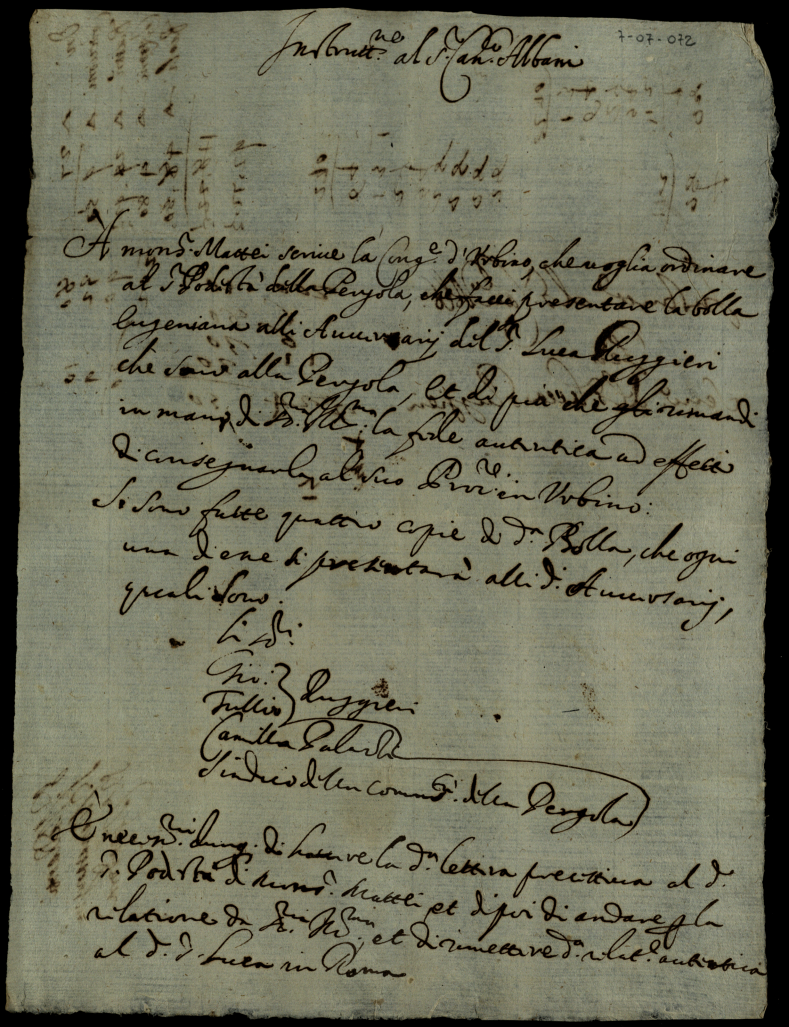 7-07-072
Instrutt.ne al S.r Can.co Albani
A mons.r Mattei scrive la Cong.e d'Urbino, che voglia ordinare
al S.r Podestà della Pergola, che facci presentare la bolla
Eugeniana alli Auuersarij del S.r Luca Ruggieri
che sono alla Pergola, et di più che gli rimandi
in mano di la fede autentica ad effetto
di consegnarla al suo Proc.re in Urbino:
Si sono fatte quattro copie di d.a Bolla, che ogni
una di esse si presentarà alli d.i Auuersarij,
quali sono:
Li SS.ri
Gio:
Tullio } Ruggieri
Camilla
Sindico della comm.tà della Pergola
È necess.rio dunq. di havere la d.a lettera precettiva al d.o
S.r Podestà di Mons.r Mattei et di poi di andare p la
relatione da et di rimettere d.a relat.e autentica
al d.o S.r Luca in Roma